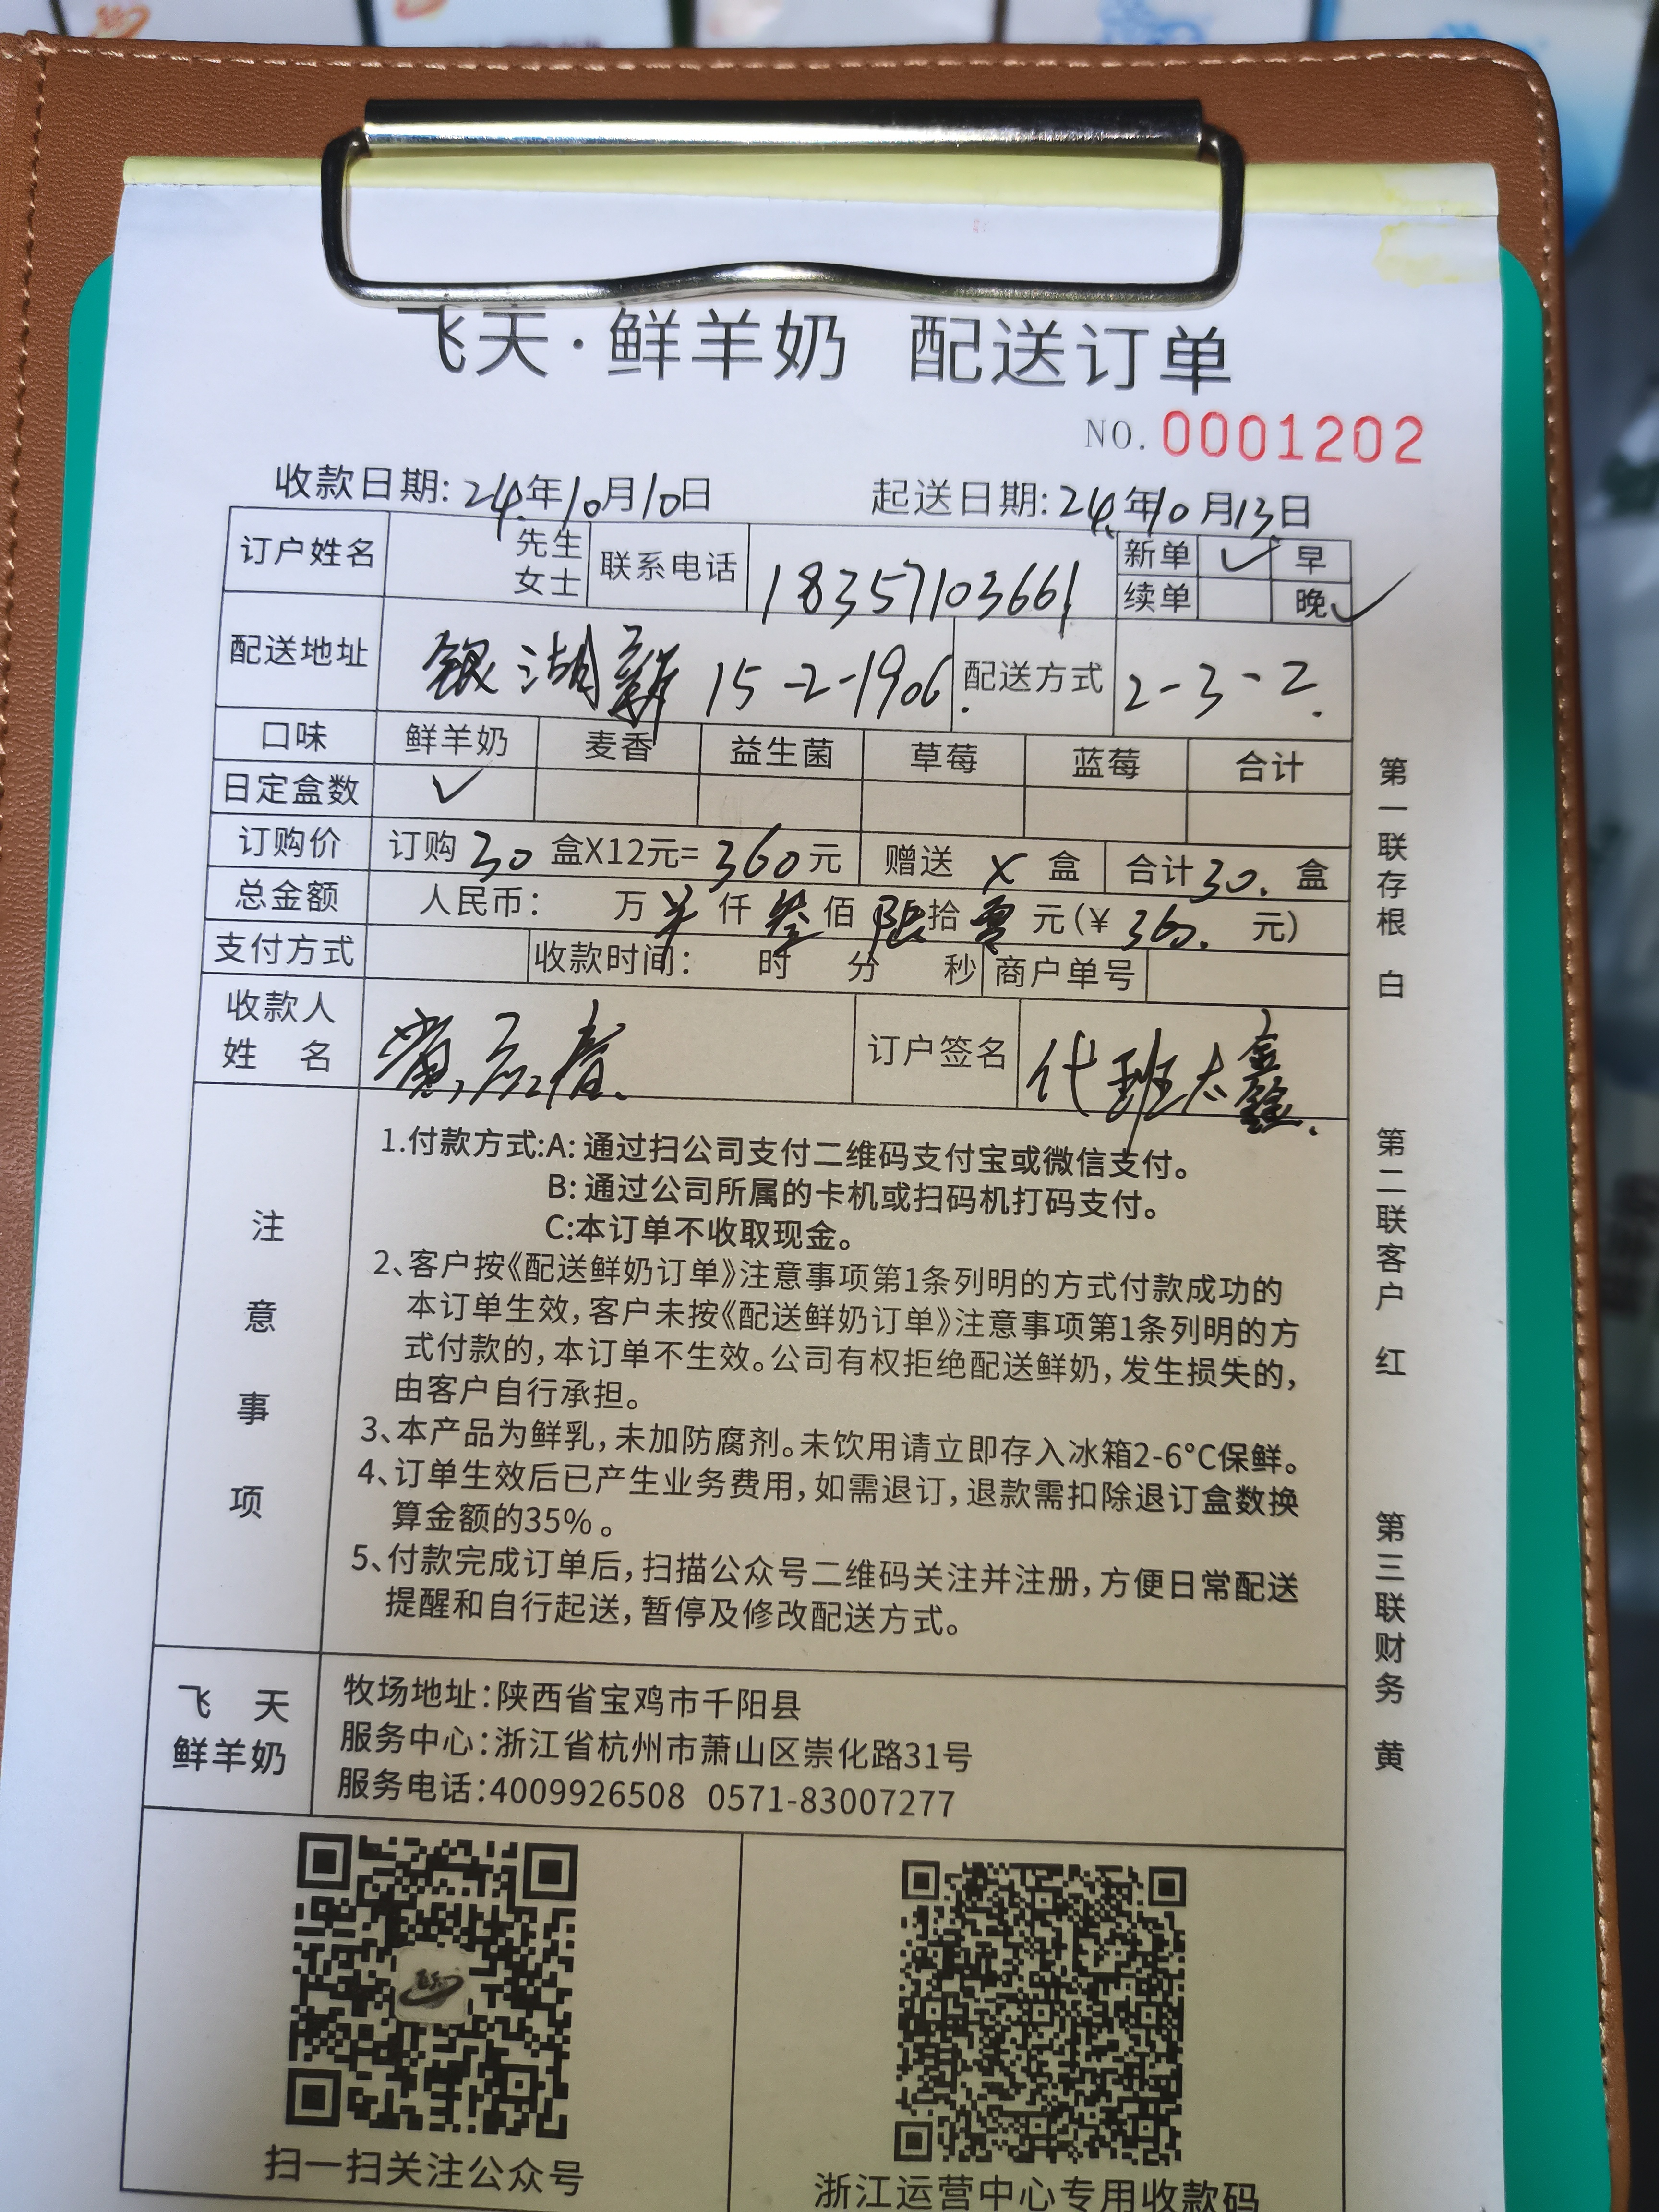 飞天·鲜羊奶 配送订单
NO. 0001202
收款日期: 24年10月10日 起送日期: 24年10月13日
订户姓名 先生 女士 联系电话 18357103661 新单 ✓ 早
续单 晚 ✓
配送地址 银湖新 15-2-1906. 配送方式 2-3-2.
口味 鲜羊奶 麦香 益生菌 草莓 蓝莓 合计
日定盒数 ✓
订购价 订购 30 盒X12元= 360 元 赠送 X 盒 合计 30. 盒
总金额 人民币: 万 仟 叁 佰 陆 拾 零 元(¥ 360. 元)
支付方式 收款时间: 时 分 秒 商户单号
收款人
姓 名 订户签名 代班
注意事项
1.付款方式:A: 通过扫公司支付二维码支付宝或微信支付。
B: 通过公司所属的卡机或扫码机打码支付。
C:本订单不收取现金。
2、客户按《配送鲜奶订单》注意事项第1条列明的方式付款成功的
本订单生效,客户未按《配送鲜奶订单》注意事项第1条列明的方
式付款的,本订单不生效。公司有权拒绝配送鲜奶,发生损失的,
由客户自行承担。
3、本产品为鲜乳,未加防腐剂。未饮用请立即存入冰箱2-6°C保鲜。
4、订单生效后已产生业务费用,如需退订,退款需扣除退订盒数换
算金额的35% 。
5、付款完成订单后,扫描公众号二维码关注并注册,方便日常配送
提醒和自行起送,暂停及修改配送方式。
飞 天
鲜羊奶
牧场地址:陕西省宝鸡市千阳县
服务中心:浙江省杭州市萧山区崇化路31号
服务电话:4009926508 0571-83007277
扫一扫关注公众号
浙江运营中心专用收款码
第一联存根 白
第二联客户 红
第三联财务 黄